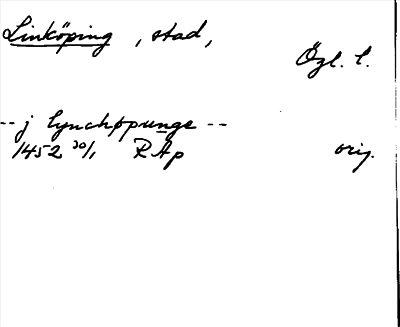 Linköping, stad,
Ögl. l.
-- j lynchøpunge --
1452 30/1 RAp orig.